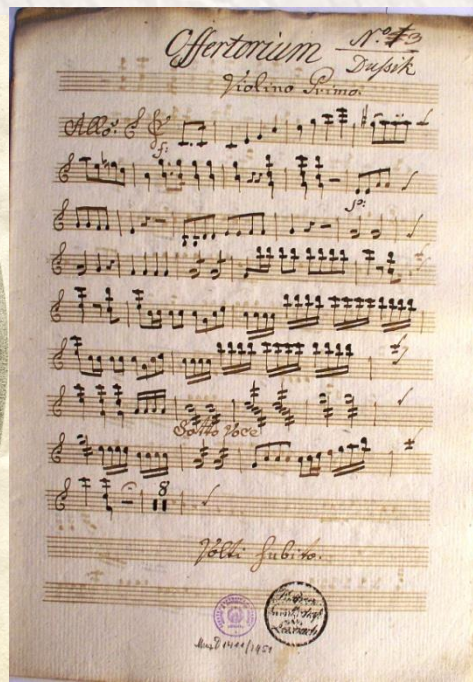 Offertorium N.º 3
Duſsik
Violino Primo.
Allo: f:
p:
Sotto Voce
8
Volti Subito.
Muz D 1411/1951